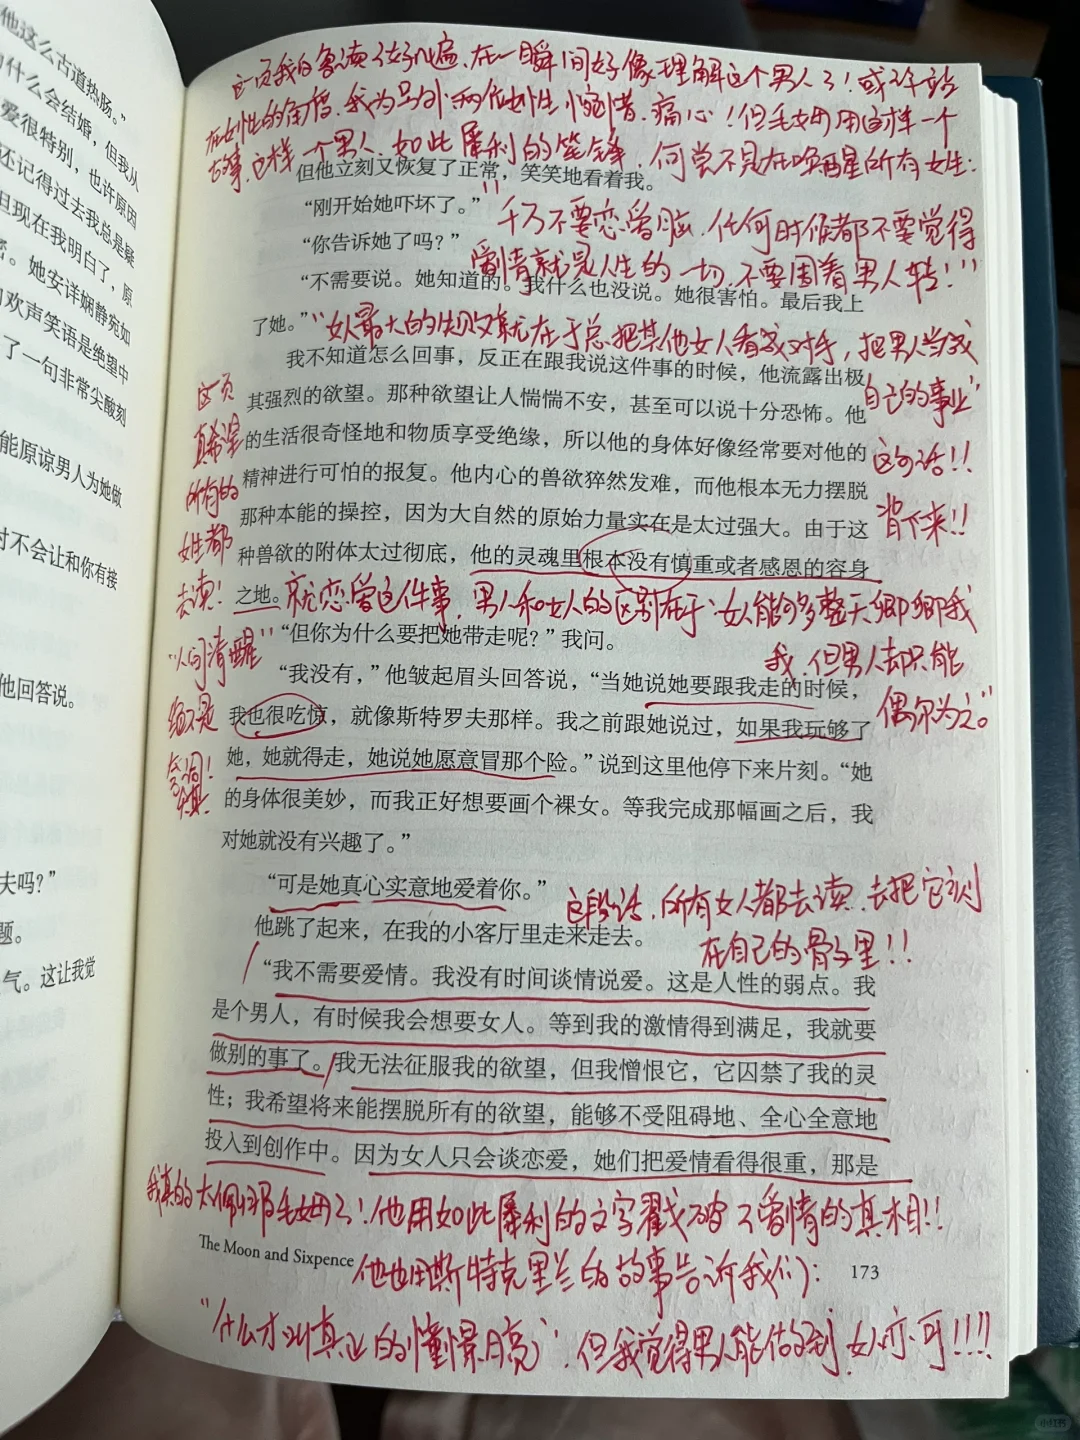 他这么古道热肠。”
什么会结婚，但我从
爱很特别，也许原因
还记得过去我总是疑
但现在我明白了，原
密。她安详娴静宛如
欢声笑语是绝望中
了一句非常尖酸刻
能原谅男人为她做
对不会让和你有接
他回答说。
夫吗？”
题。
气。这让我觉
这一页我的鲁读了好几遍、在一瞬间好像理解这个男人了！或许站
在女性的角度、我为另外两位女性惋惜、痛心！但毛姆用这样一个
故事、这样一个男人、如此犀利的笔锋、何尝不是在唤醒所有女性：
但他立刻又恢复了正常，笑笑地看着我。
“刚开始她吓坏了。”
“千万不要恋爱脑、任何时候都不要觉得
“你告诉她了吗？”
爱情就是人生的一切、不要围着男人转！”
“不需要说。她知道的。我什么也没说。她很害怕。最后我上
了她。”
“女人最大的失败就在于总把其他女人看成对手，把男人当成
自己的事业”
这句话！！
背下来！！
我不知道怎么回事，反正在跟我说这件事的时候，他流露出极
其强烈的欲望。那种欲望让人惴惴不安，甚至可以说十分恐怖。他
的生活很奇怪地和物质享受绝缘，所以他的身体好像经常要对他的
精神进行可怕的报复。他内心的兽欲猝然发难，而他根本无力摆脱
那种本能的操控，因为大自然的原始力量实在是太过强大。由于这
种兽欲的附体太过彻底，他的灵魂里根本没有慎重或者感恩的容身
之地。
这页
真希望
所有的
女性都
去读！
“人间清醒”
绝不是
空洞！
就恋爱这件事，男人和女人的区别在于“女人能够整天卿卿我
我、但男人却只能
偶尔为之。”
“但你为什么要把她带走呢？”我问。
“我没有，”他皱起眉头回答说，“当她说她要跟我走的时候，
我也很吃惊，就像斯特罗夫那样。我之前跟她说过，如果我玩够了
她，她就得走，她说她愿意冒那个险。”说到这里他停下来片刻。“她
的身体很美妙，而我正好想要画个裸女。等我完成那幅画之后，我
对她就没有兴趣了。”
“可是她真心实意地爱着你。”
这段话、所有女人都去读、去把它刻
在自己的骨子里！！
他跳了起来，在我的小客厅里走来走去。
“我不需要爱情。我没有时间谈情说爱。这是人性的弱点。我
是个男人，有时候我会想要女人。等到我的激情得到满足，我就要
做别的事了。我无法征服我的欲望，但我憎恨它，它囚禁了我的灵
性；我希望将来能摆脱所有的欲望，能够不受阻碍地、全心全意地
投入到创作中。因为女人只会谈恋爱，她们把爱情看得很重，那是
我真的太佩服毛姆了！他用如此犀利的文字戳破了爱情的真相！！
The Moon and Sixpence
他也用斯特克里兰的故事告诉我们：
173
“什么才叫真正的憧憬月亮”、但我觉得男人能做到、女人亦可！！！！
小红书